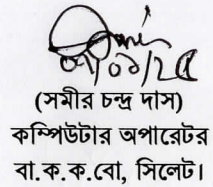 ০৭/০১/২৫
(সমীর চন্দ্র দাস)
কম্পিউটার অপারেটর
বা.ক.ক.বো, সিলেট।